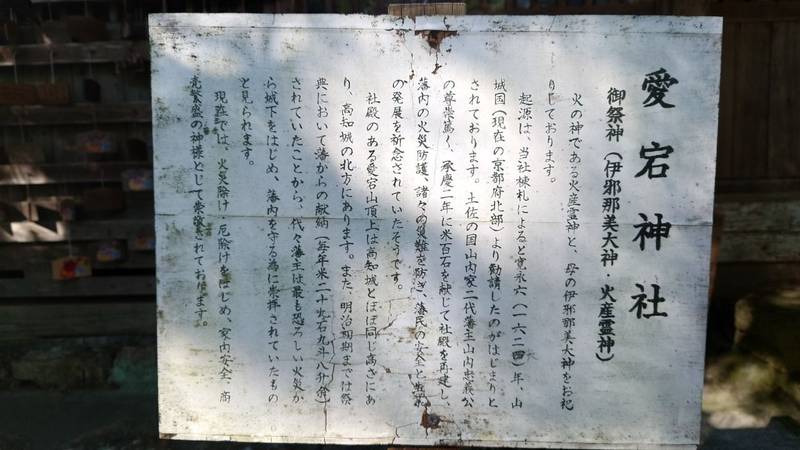 愛宕神社
御祭神(伊邪那美大神・火産霊神)
火の神である火産霊神と、母の伊邪那美大神をお祀
りしております。
起源は、当社棟札によると寛永六(一六二四)年、山
城国(現在の京都府北部)より勧請したのがはじまりと
されております。土佐の国山内家二代藩主山内忠義公
の尊崇篤く、承慶二年に米百石を献じて社殿を再建し、
藩内の火災防護、諸々の災難を防ぎ、藩民の安全と
の発展を祈念されていたそうです。
社殿のある愛宕山頂上は高知城とほぼ同じ高さにあ
り、高知城の北方にあります。また、明治初期までは祭
典において藩からの献納(毎年米二十
石九斗八升
されていたことから、代々藩主は最も恐ろしい火災か
ら城下をはじめ、藩内を守る為に崇拝されていたもの
と見られます。
現在では、火災除け・厄除けをはじめ、家内安全、商
売繁盛の神様として崇敬されております。